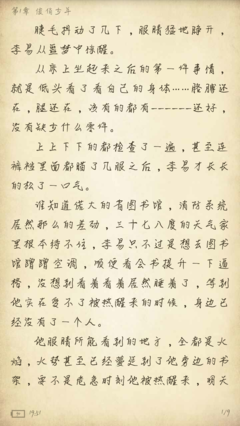 第1章 猥琐少年
睫毛抖动了几下，眼睛猛地睁开，
李易从噩梦中惊醒。
从床上坐起来之后的第一件事情，
就是低头看了看自己的身体……胳膊还
在，腿还在，该有的都有------还好，
没有缺少什么零件。
上上下下的都检查了一遍，甚至连
裤裆里面都瞄了几眼之后，李易才长长
的松了一口气。
谁知道偌大的省图书馆，消防系统
居然那么的差劲，三十七八度的天气家
里根本待不住，李易只不过是想去图书
馆蹭蹭空调，顺便看会书提升一下逼
格，没想到看着看着居然睡着了，等到
他实在受不了被热醒来的时候，身边已
经没有了一个人。
他眼睛所能看到的地方，全都是火
焰，火势甚至已经蔓延到了他身边的书
架，要不是危急时刻他被热醒来，明天
1/9